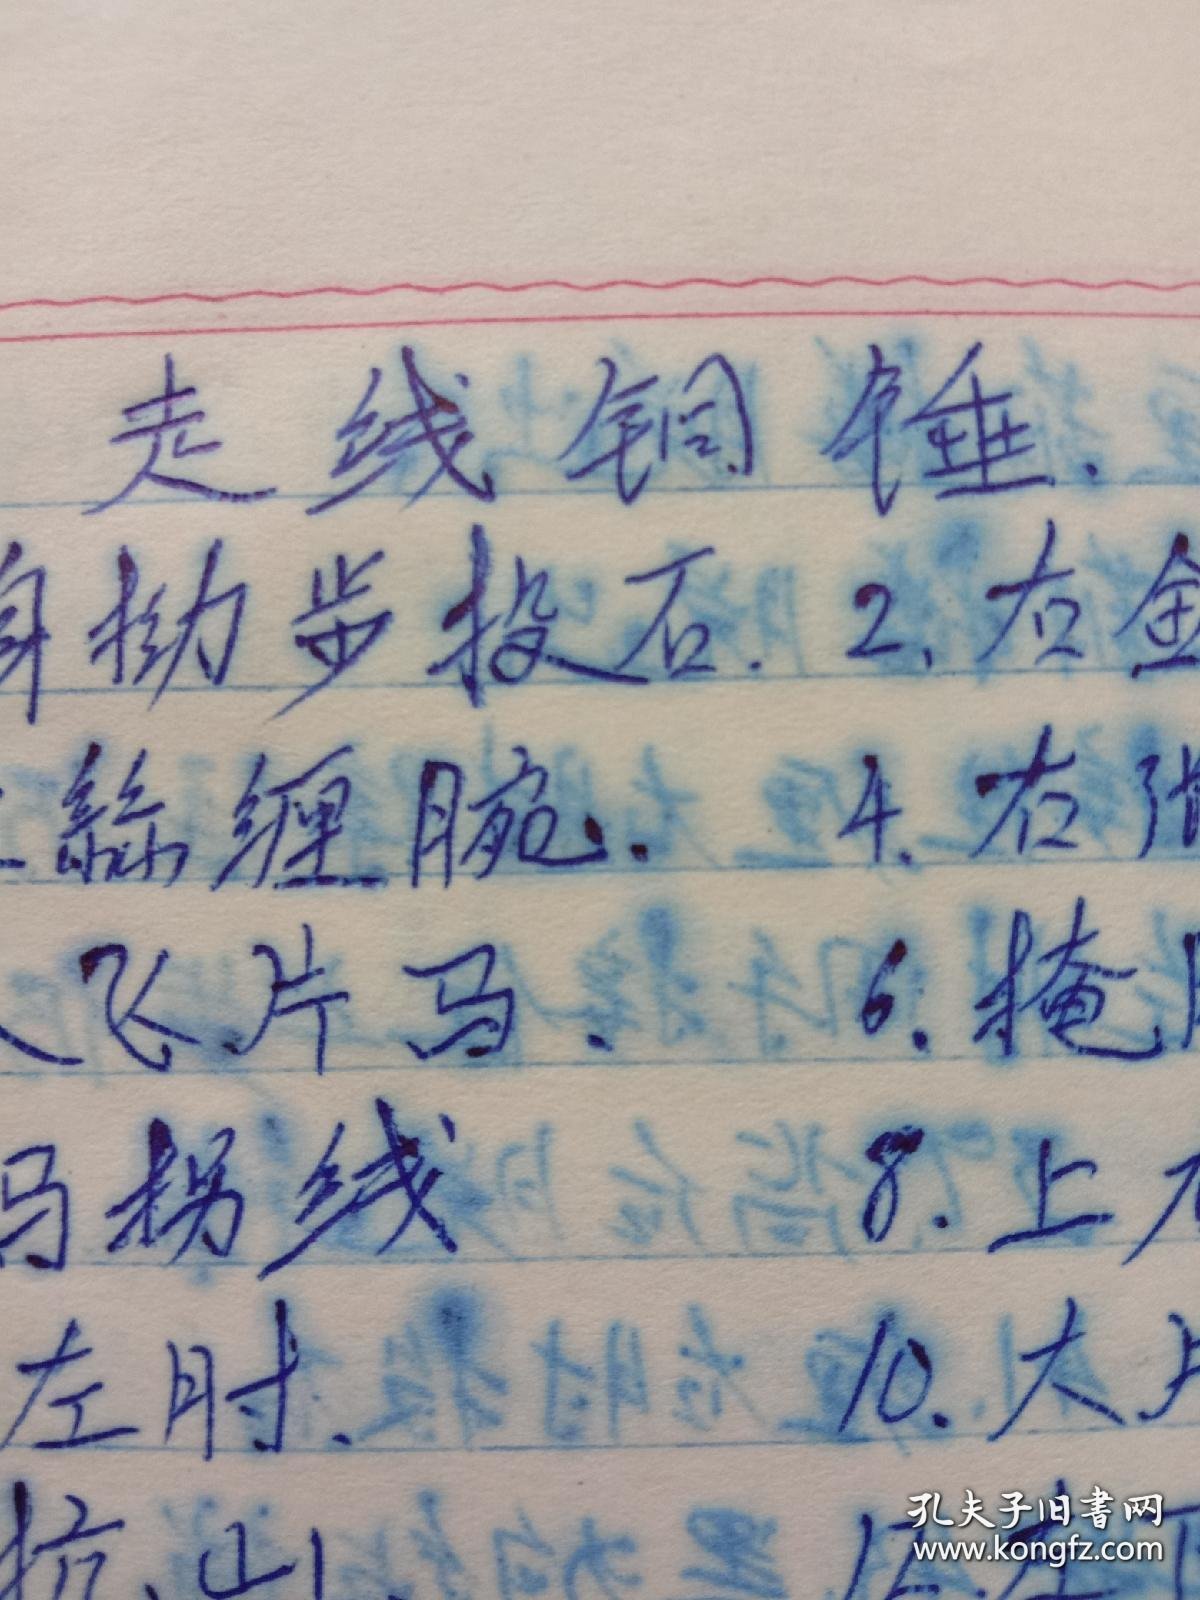 走线铜锤.
身拗步投石. 2. 右金
絲缠腕. 4. 右
飞片马. 6. 掩
马拐线 8. 上
左肘. 10. 大
抗山. 12. 左
孔夫子旧书网
www.kongfz.com